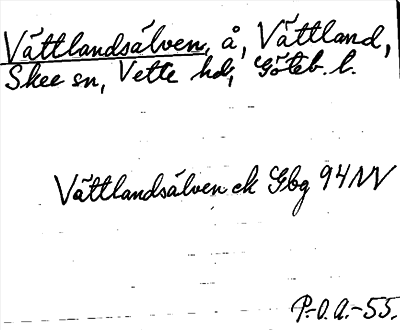 Vättlandsälven, å, Vättland,
Skee sn, Vette hd, Göteb. l.
Vättlandsälven ek Gbg 94 NV
P.-O.A.-55.